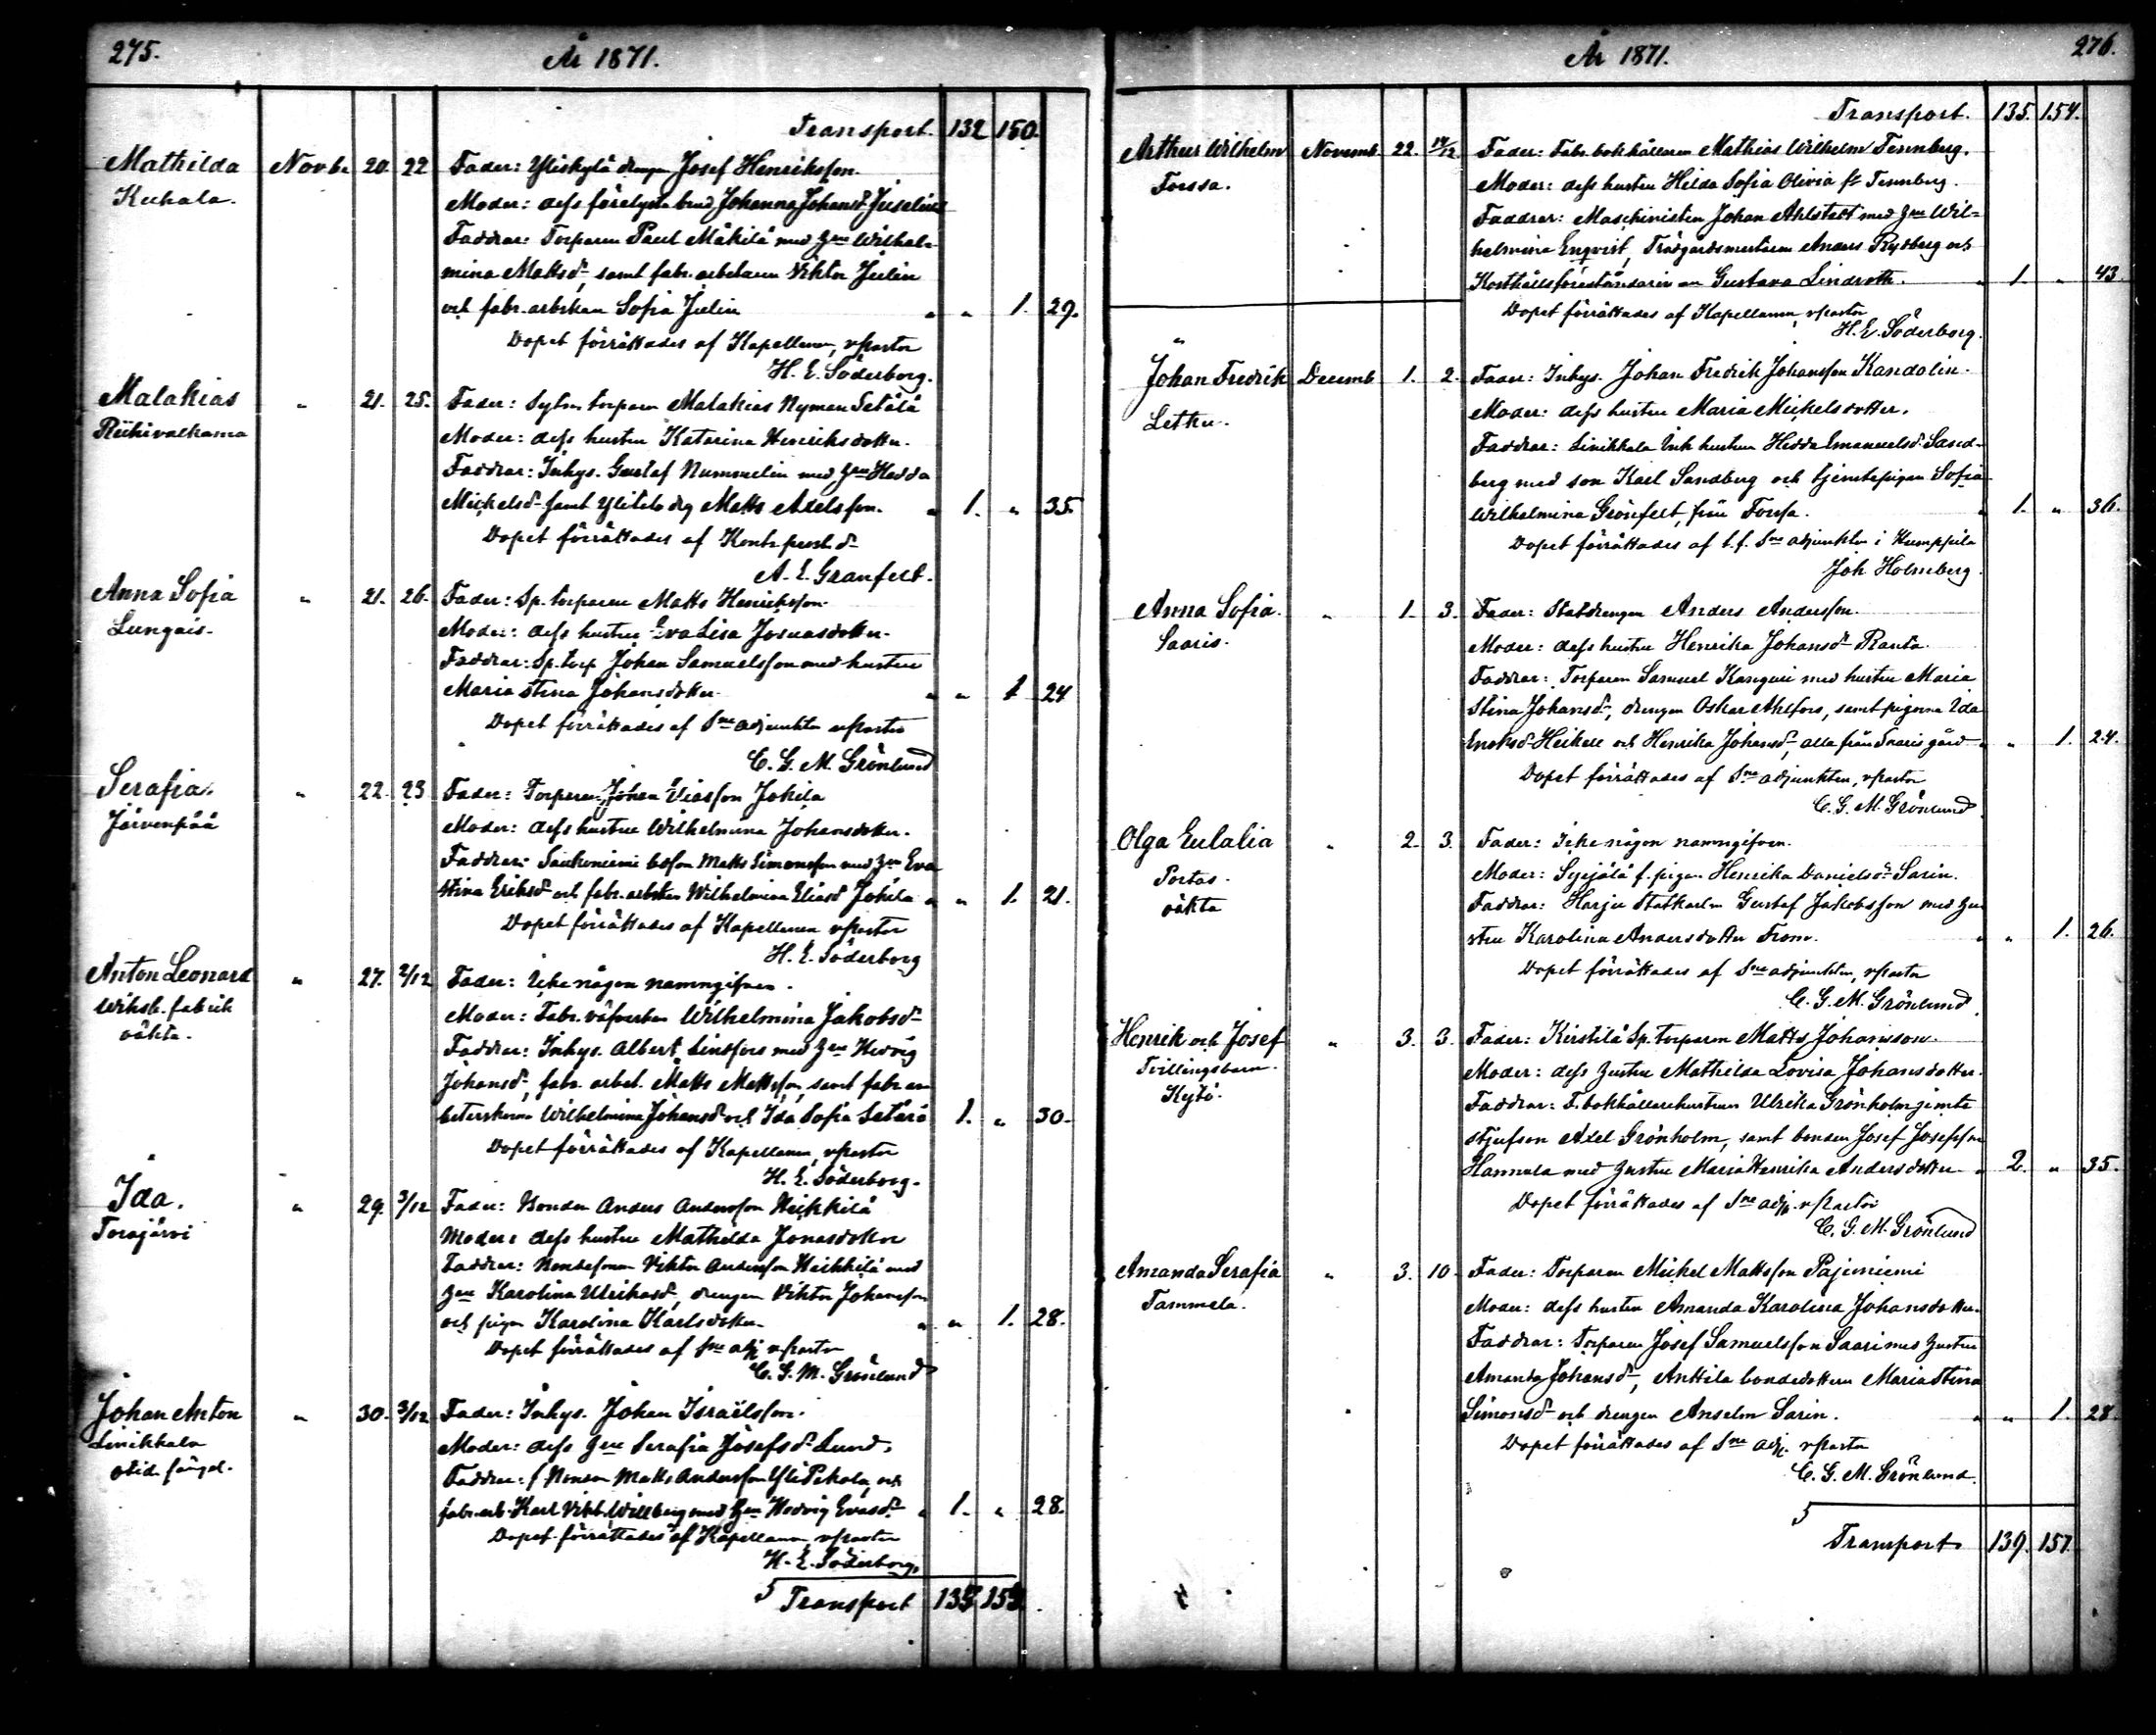 275.
År 1871.
Transport. 132 150.
Mathilda Novbr. 20. 22 Fader: Yliskylä drengen Josef Henriksson.
Kuhala. Moder: dess förelysta brud Johanna Johansdr Juselius
Faddrar: Torparen Paul Mäkilä med hru Wilhel-
mina Mattsdr, samt fabr. arbetaren Viktor Julin
och fabr. arbeterskan Sofia Julin " " 1. 29.
Dopet förrättades af Kapellanen, vPastor
H. E. Söderborg.
Malakias " 21. 25. Fader: Sytn. torparen Malakias Nyman Setälä
Riihivalkama Moder: dess hustru Katarina Henriksdotter.
Faddrar: Inhys. Gustaf Nummelin med hru Hedda
Mickelsdr samt Ylitalo drg Matts Axelsson. " 1. " 35.
Dopet förrättades af Kontr. prost. dr
A. E. Granfelt.
Anna Sofia " 21. 26. Fader: Sp. torparen Matts Henriksson.
Lungais. Moder: dess hustru Eva Lisa Josuasdotter.
Faddrar: Sp. torp Johan Samuelsson med hustru
Maria Stina Johansdotter " " 1 24
Dopet förrättades af Sne adjunkten vPastor
C. G. M. Grönlund
Serafia. " 22. 23 Fader: Torparen Johan Eliasson Jokila
Järvenpää Moder: dess hustru Wilhelmina Johansdotter.
Faddrar: Saukoniemi bdson Matts Simonsson med hru Eva
Stina Eriksdr och fabr. arbeterskan Wilhelmina Eliasdr Jokila " " 1. 21.
Dopet förrättades af Kapellanen vPastor
H. E. Söderborg
Anton Leonard " 27. 2/12 Fader: Icke någon namngifven.
Wiksb. fabrik Moder: Fabr. väfverskan Wilhelmina Jakobsdr
oäkta. Faddrar: Inhys. Albert Lindfors med hru Hedvig
Johansdr, fabr. arbet. Matts Mattsson, samt fabr. ar-
beterskorna Wilhelmina Johansdr och Ida Sofia Setärä 1. " 30.
Dopet förrättades af Kapellanen, vPastor
H. E. Söderborg.
Ida. " 29. 3/12 Fader: Bonden Anders Andersson Heikkilä
Torajärvi Moder: dess hustru Mathilda Jonasdotter
Faddrar: Bondesonen Viktor Andersson Heikkilä med
hru Karolina Ulrikasdr, drengen Viktor Johansson
och pigan Karolina Karlsdotter. " " 1. 28.
Dopet förrättades af Sne adj vPastor
C. G. M. Grönlund
Johan Anton " 30. 3/12 Fader: Inhys. Johan Israëlsson.
Linikkala Moder: dess hru Serafia Josefsdr Lund.
otid. fängel. Faddrar: f Bonden Matts Andersson Yli Pekola, och
fabr. arb. Karl Vikt. Willberg med hru Hedvig Evasdr " 1. " 28.
Dopet förrättades af Kapellanen, vPastor
H. E. Söderborg.
Transport 135 154.
År 1871.
276.
Transport. 135. 154.
Arthur Wilhelm Novemb. 22. 14/12 Fader: Fabr. bokhållaren Mathias Wilhelm Tennberg.
Forssa. Moder: dess hustru Hilda Sofia Olivia f. Tennberg.
Faddrar: Maschinisten Johan Ahlstedt med hru Wil-
helmina Enqvist, Trädgårdsmästaren Anders Rydberg och
Kosthållsföreståndarinnan Gustava Lindroth. " 1. " 43.
Dopet förrättades af Kapellanen, vPastor
H. E. Söderborg.
Johan Fredrik Decemb. 1. 2. Fader: Inhys. Johan Fredrik Johansson Kandolin.
Letku. Moder: dess hustru Maria Mickelsdotter.
Faddrar: Linikkala Inh hustrun Hedda Emanuelsdr Sand-
berg med son Karl Sandberg och tjenstepigan Sofia
Wilhelmina Grönfelt, från Forssa. " 1. " 36.
Dopet förrättades af t.f. Sne adjunkten i Humppila
Joh Holmberg.
Anna Sofia. " 1. 3. Fader: Statdrengen Anders Andersson.
Saaris. Moder: dess hustru Henrika Johansdr Ranta.
Faddrar: Torparen Samuel Kanguri med hustru Maria
Stina Johansdr, drengen Oskar Ahlfors, samt pigorna Ida
Enoksdr Heikell och Henrika Johansdr, alla från Saaris gård " " 1. 24.
Dopet förrättades af Sne adjunkten, vPastor
C. G. M. Grönlund
Olga Eulalia " 2. 3. Fader: Icke någon namngifven.
Portas. Moder: Syrjälä f. pigan Henrika Danielsdr Sarin.
oäkta Faddrar: Harju Statkarlen Gustaf Jakobsson med hu-
stru Karolina Andersdotter From. " " 1. 26.
Dopet förrättades af Sne adjunkten, vPastor
C. G. M. Grönlund.
Henrik och Josef " 3. 3. Fader: Kirstilä Sp. torparen Matts Johansson.
Tvillingsbarn. Moder: dess hustru Mathilda Lovisa Johansdotter.
Kytö. Faddrar: F. bokhållarehustrun Ulrika Grönholm jemte
stjufson Axel Grönholm, samt bonden Josef Josefsson
Hannula med hustru Maria Henrika Andersdotter. " 2. " 35.
Dopet förrättades af Sne adj. vPastor
C. G. M. Grönlund
Amanda Serafia " 3. 10. Fader: Torparen Mickel Mattsson Pajuniemi
Tammela. Moder: dess hustru Amanda Karolina Johansdotter.
Faddrar: Torparen Josef Samuelsson Saari med hustru
Amanda Johansdr, Anttila bondedottern Maria Stina
Simonsdr och drengen Anselm Sarin. " " 1. 28.
Dopet förrättades af Sne adj. vPastor
C. G. M. Grönlund.
Transport 139. 157.